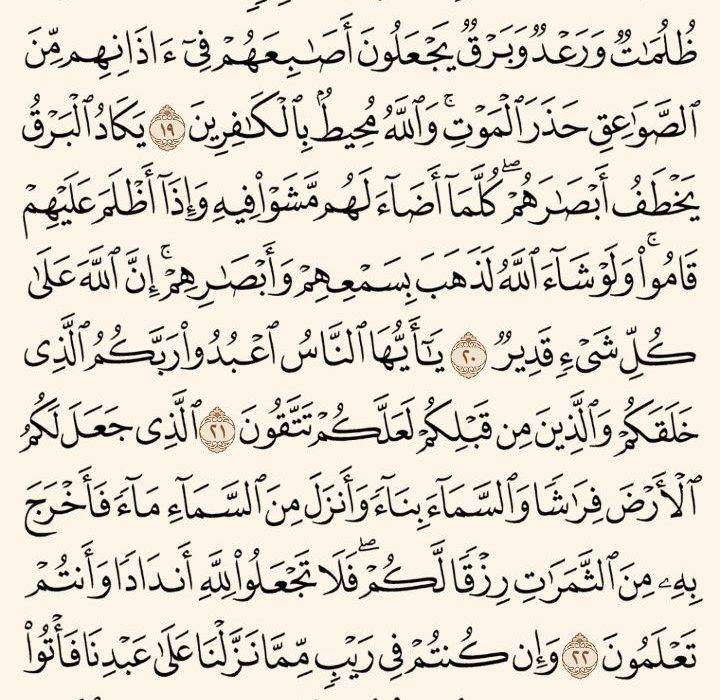 ظُلُمَٰتٞ وَرَعۡدٞ وَبَرۡقٞ يَجۡعَلُونَ أَصَٰبِعَهُمۡ فِيٓ ءَاذَانِهِم مِّنَ
ٱلصَّوَٰعِقِ حَذَرَ ٱلۡمَوۡتِۚ وَٱللَّهُ مُحِيطُۢ بِٱلۡكَٰفِرِينَ ١٩ يَكَادُ ٱلۡبَرۡقُ
يَخۡطَفُ أَبۡصَٰرَهُمۡۖ كُلَّمَآ أَضَآءَ لَهُم مَّشَوۡاْ فِيهِ وَإِذَآ أَظۡلَمَ عَلَيۡهِمۡ
قَامُواْۚ وَلَوۡ شَآءَ ٱللَّهُ لَذَهَبَ بِسَمۡعِهِمۡ وَأَبۡصَٰرِهِمۡۚ إِنَّ ٱللَّهَ عَلَىٰ
كُلِّ شَيۡءٖ قَدِيرٞ ٢٠ يَٰٓأَيُّهَا ٱلنَّاسُ ٱعۡبُدُواْ رَبَّكُمُ ٱلَّذِي
خَلَقَكُمۡ وَٱلَّذِينَ مِن قَبۡلِكُمۡ لَعَلَّكُمۡ تَتَّقُونَ ٢١ ٱلَّذِي جَعَلَ لَكُمُ
ٱلۡأَرۡضَ فِرَٰشٗا وَٱلسَّمَآءَ بِنَآءٗ وَأَنزَلَ مِنَ ٱلسَّمَآءِ مَآءٗ فَأَخۡرَجَ
بِهِۦ مِنَ ٱلثَّمَرَٰتِ رِزۡقٗا لَّكُمۡۖ فَلَا تَجۡعَلُواْ لِلَّهِ أَندَادٗا وَأَنتُمۡ
تَعۡلَمُونَ ٢٢ وَإِن كُنتُمۡ فِي رَيۡبٖ مِّمَّا نَزَّلۡنَا عَلَىٰ عَبۡدِنَا فَأۡتُواْ